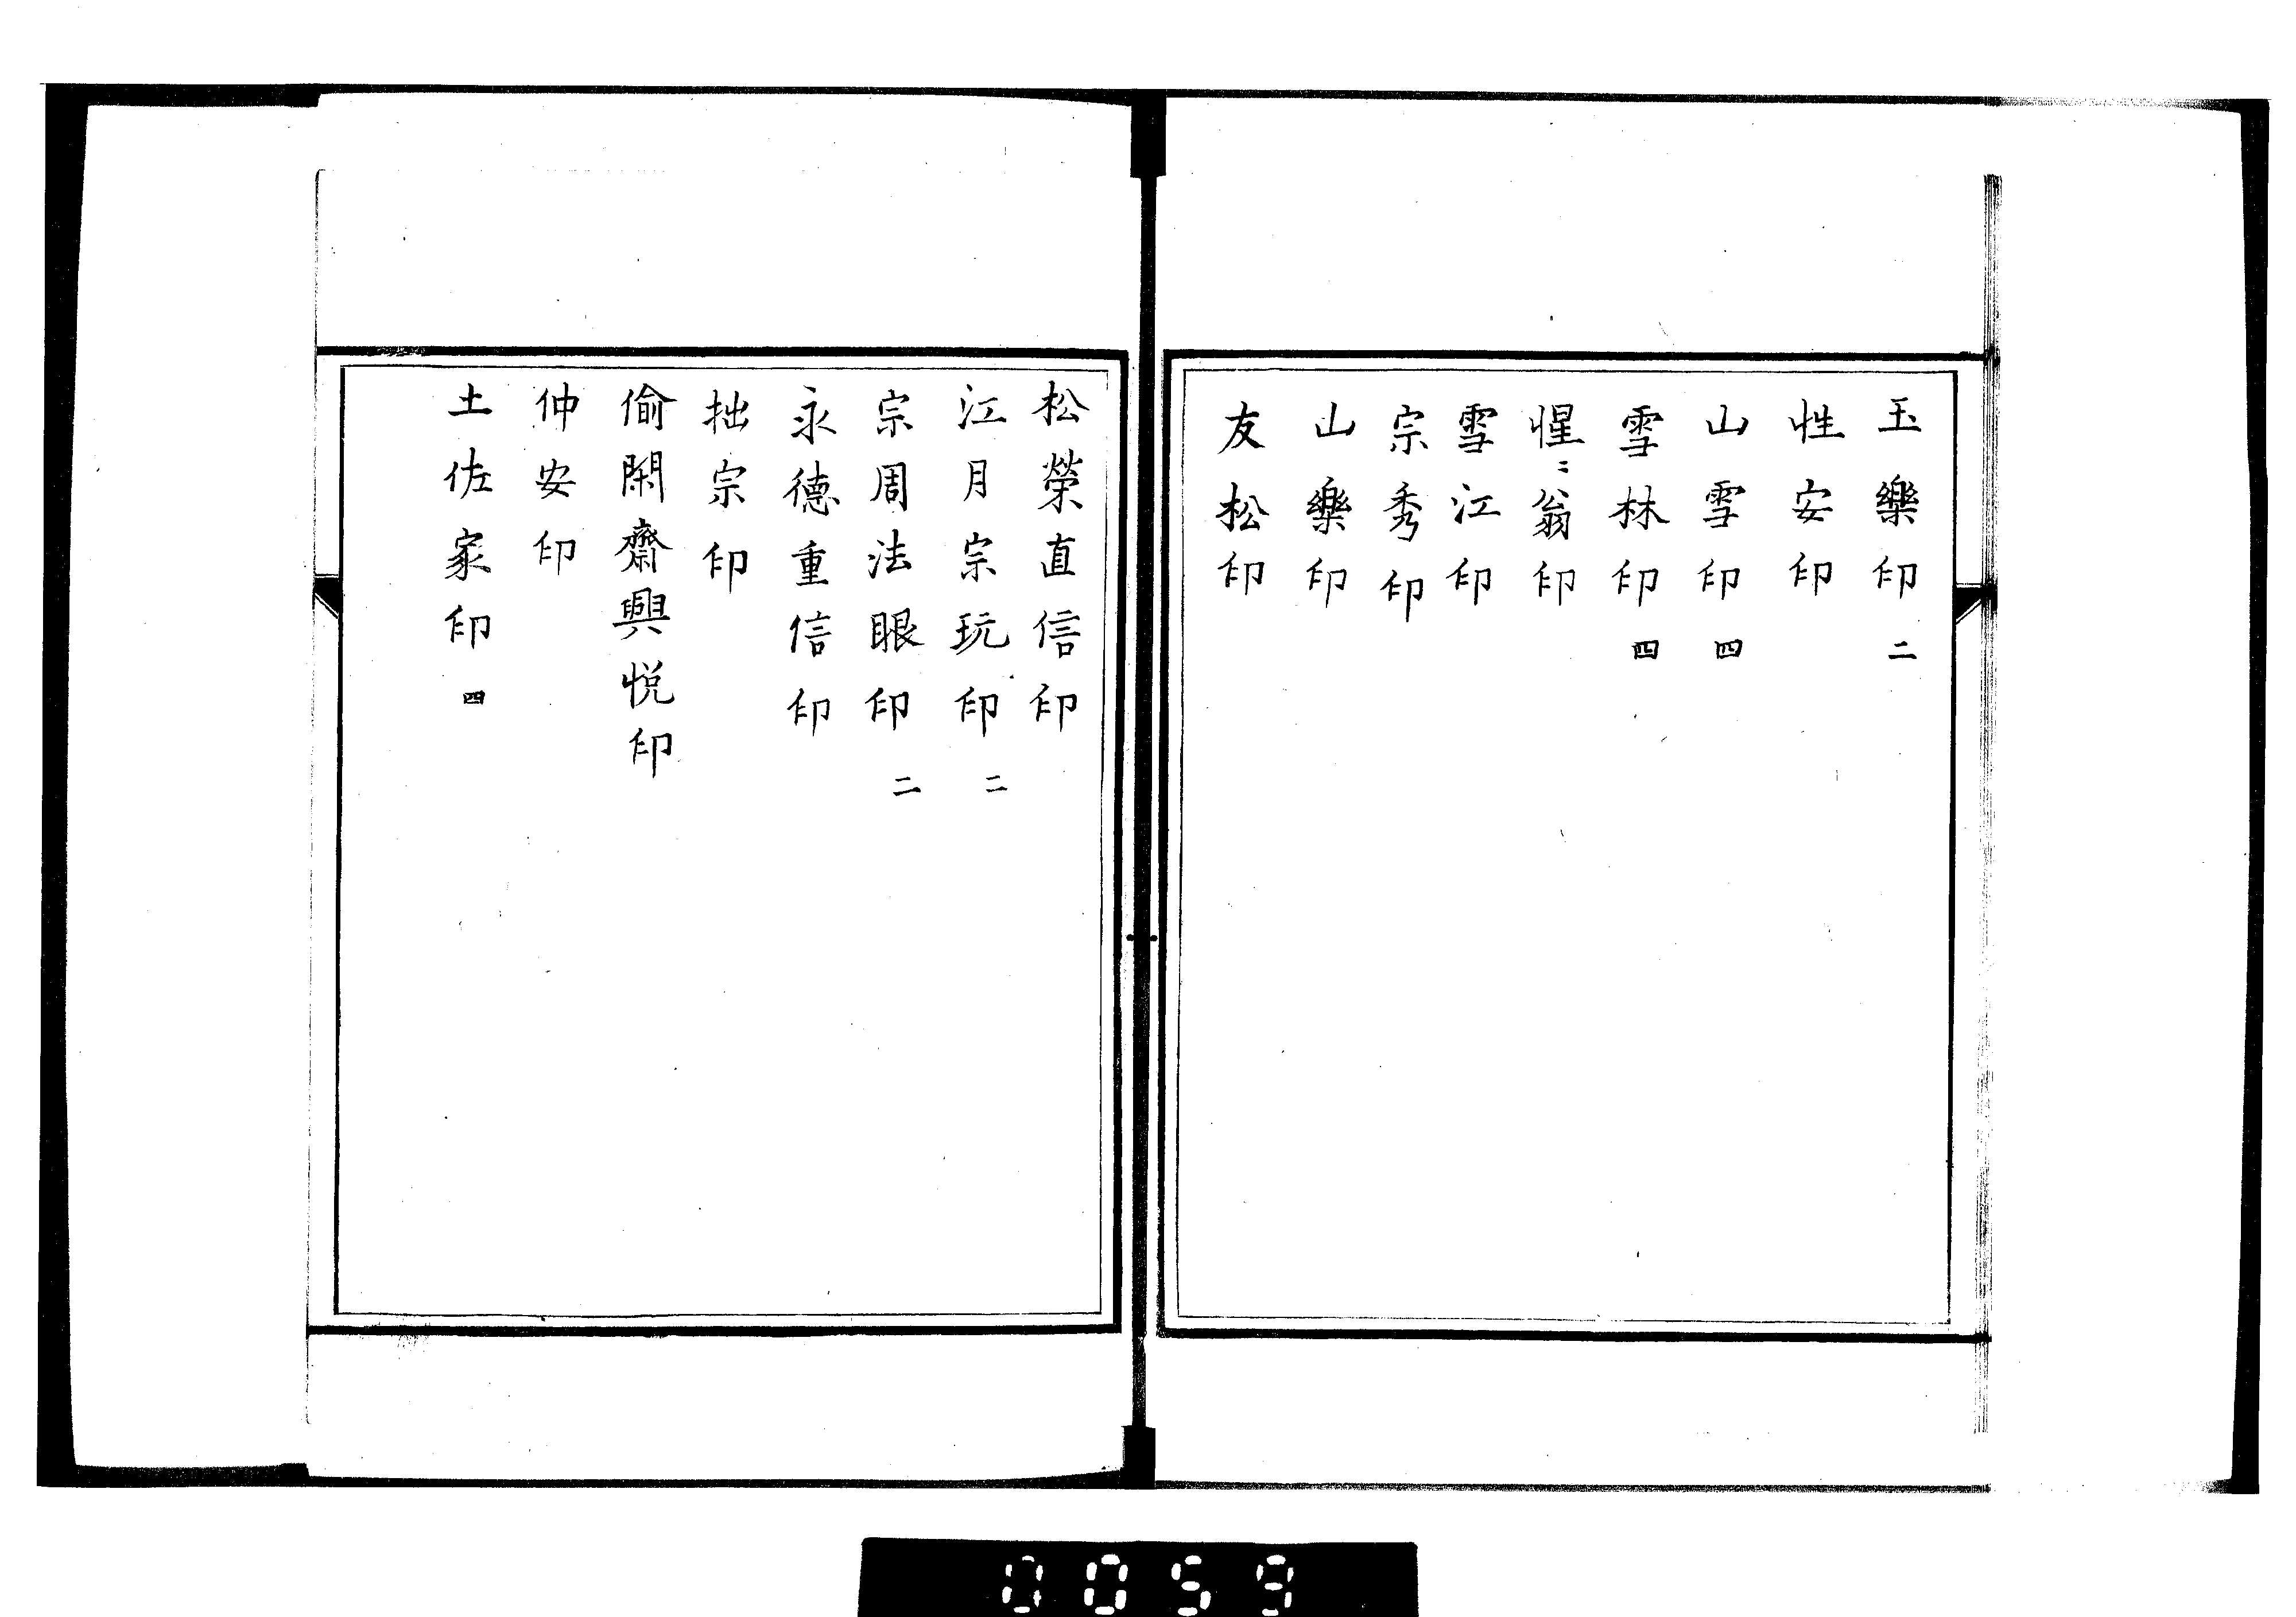 玉樂印 二
性安印
山雪印 四
雪林印 四
惺〻翁印
雪江印
宗秀印
山樂印
友松印
松榮直信印
江月宗玩印 二
宗周法眼印 二
永德重信印
拙宗印
偷閑齋興悦印
仲安印
土佐家印 四
0059